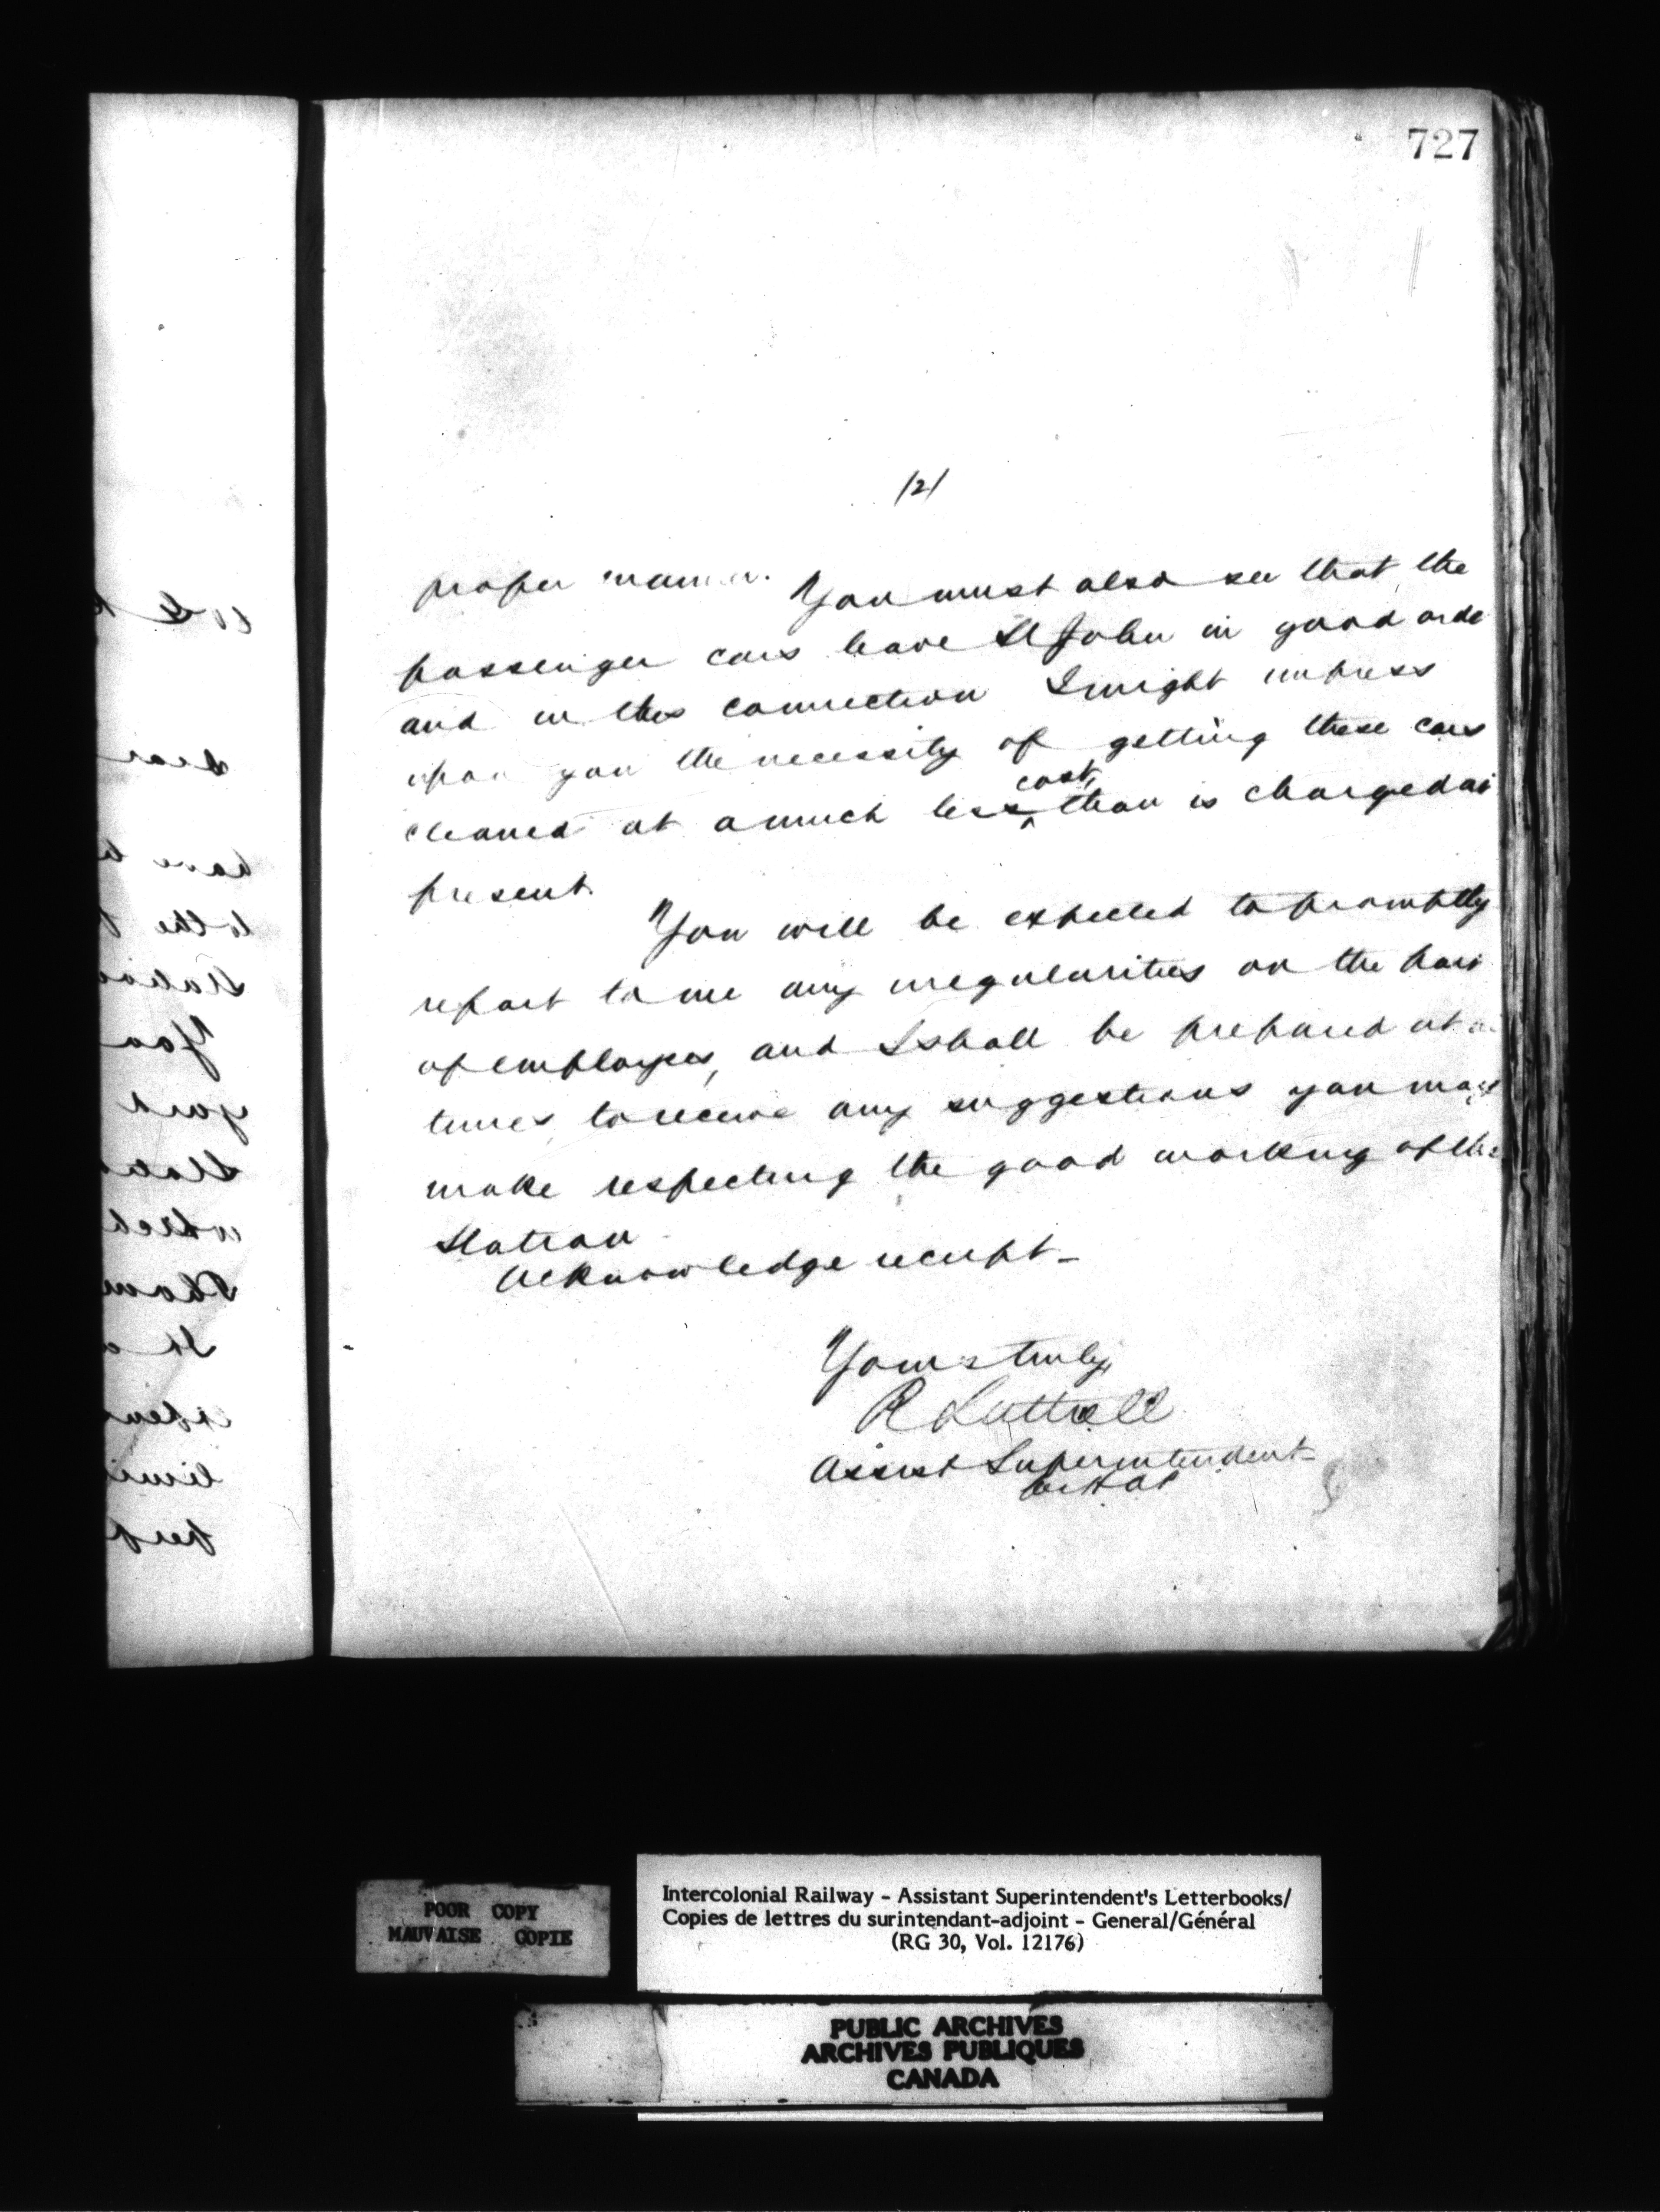 727
/2/
proper manner. You must also see that the
passenger cars leave St John in good orde
and in this connection I might impress
upon you the necessity of getting these cars
cleaned at a much less cost, than is charged at
present.
You will be expected to promptly
report to me any irregularities on the part
of employees, and I shall be prepared at
times, to receive any suggestions you may
make respecting the good working of the
Station
Acknowledge receipt -
Yours truly,
R Luttrell
Assist Superintendent
POOR COPY
MAUVAISE COPIE
Intercolonial Railway - Assistant Superintendent's Letterbooks/
Copies de lettres du surintendant-adjoint - General/Général
(RG 30, Vol. 12176)
PUBLIC ARCHIVES
ARCHIVES PUBLIQUES
CANADA